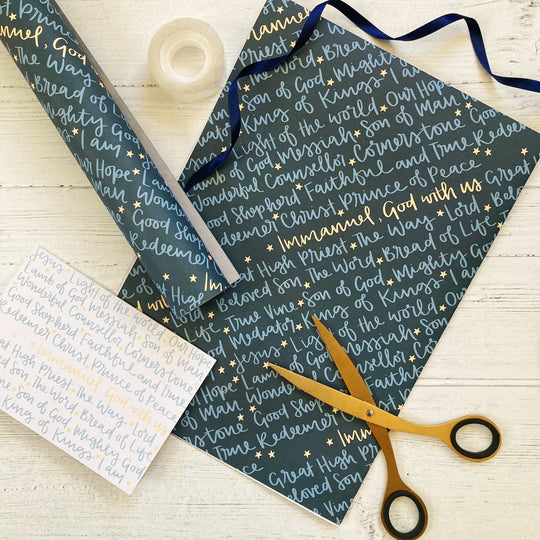 Immanuel, God
Bread of
Mighty God
I am
Our Hope
Man
Wonderful
Redeemer
Great High
Immanuel
Priest
The Word
Bread
Son of God
Mighty
King of Kings
I am
Light of the world
Our Hope
Lamb of God
Messiah
Son of Man
Wonderful Counsellor
Cornerstone
Good Shepherd
Faithful and True
Redeemer
Christ
Prince of Peace
Immanuel, God with us
Great High Priest
The Way
Lord
Beloved Son
The Word
Bread of Life
True Vine
Son of God
Mighty God
Mediator
King of Kings
I am
Jesus
Light of the world
Our
Lamb of God
Messiah
Son of
Wonderful Counsellor
Good Shepherd
Faithful
True
Redeemer
Christ
Great High Priest
Beloved Son
True Vine
Jesus Light of the World Our Hope
Lamb of God Messiah Son of Man
Wonderful Counsellor Cornerstone
Good Shepherd Faithful and True
Redeemer Christ Prince of Peace
Immanuel, God with us
Great High Priest The Way Lord
Beloved Son The Word Bread of Life
True Vine Son of God Mighty God
King of Kings I am